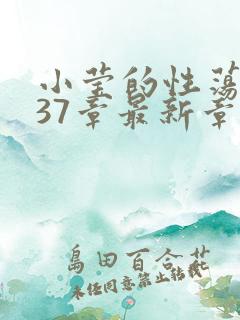 小莹的性荡
37章最新章
島田百合花
未经同意禁止转载